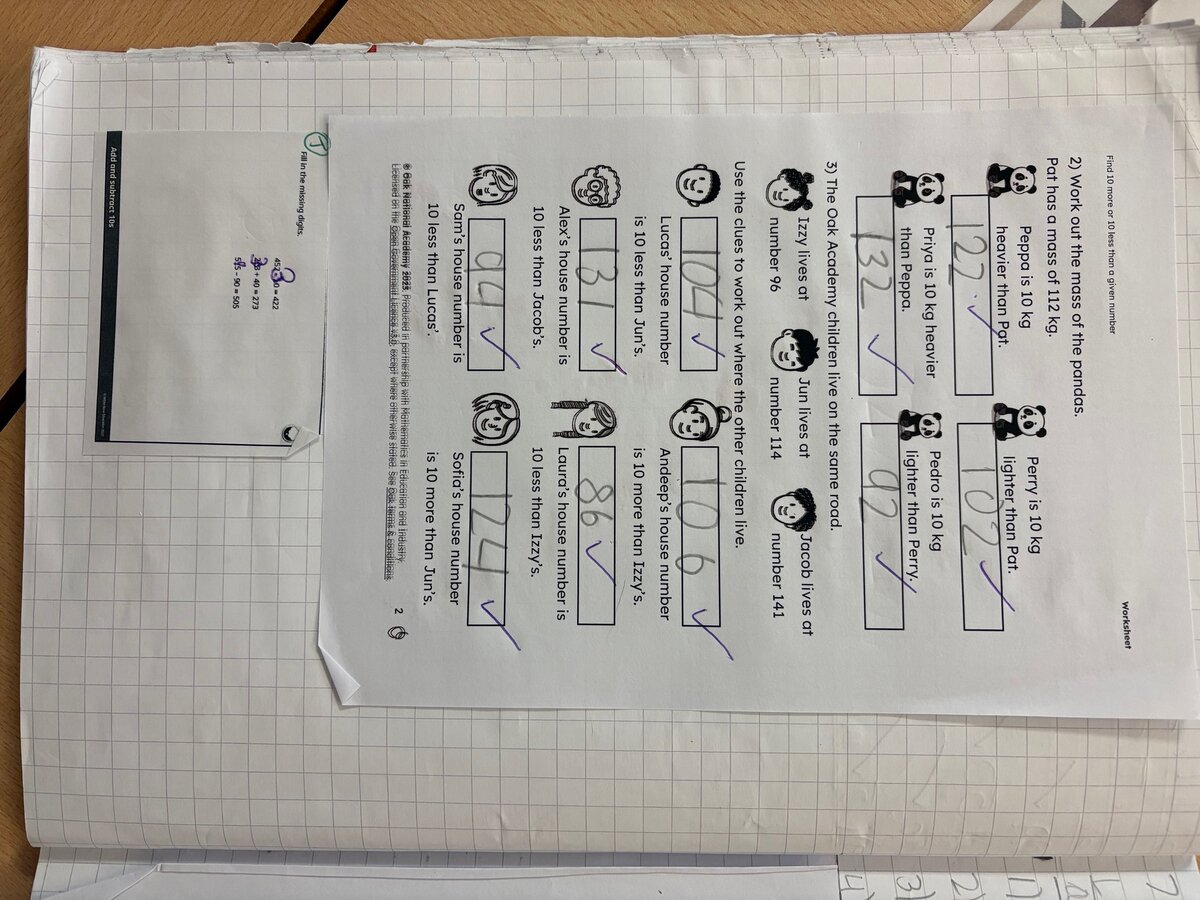 Find 10 more or 10 less than a given number
Worksheet
2) Work out the mass of the pandas.
Pat has a mass of 112 kg.
Peppa is 10 kg
heavier than Pat.
122
Perry is 10 kg
lighter than Pat.
102
Priya is 10 kg heavier
than Peppa.
132
Pedro is 10 kg
lighter than Perry.
92
3) The Oak Academy children live on the same road.
Izzy lives at
number 96
Jun lives at
number 114
Jacob lives at
number 141
Use the clues to work out where the other children live.
104
Lucas' house number
is 10 less than Jun's.
106
Andeep's house number
is 10 more than Izzy's.
131
Alex's house number is
10 less than Jacob's.
86
Laura's house number is
10 less than Izzy's.
94
Sam's house number is
10 less than Lucas'.
124
Sofia's house number
is 10 more than Jun's.
© Oak National Academy 2023. Produced in partnership with Mathematics in Education and Industry.
Licensed on the Open Government Licence v3.0, except where otherwise stated. See Oak terms & conditions.
2
T
Fill in the missing digits.
= 422
3 + 40 = 273
5 – 90 = 505
Add and subtract 10s